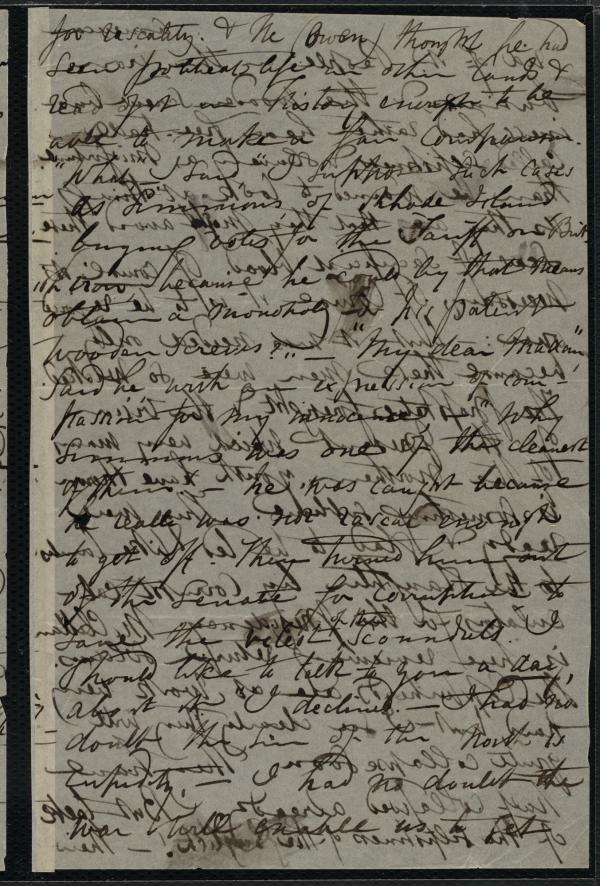 for rascality. & He (Owen) thought he had
seen political life in other lands &
read just a history enough to be
able to make a fair comparison.
"What, I said, I suppose such cases
as Simmons of Rhode Island
buying votes for the Tariff on Brit
iron because he could by that means
obtain a monopoly to his patent
wooden screws?" — "My dear Madam",
said he with an expression of com-
passion for my innocence, "why
Simmons was one of the cleanest
of them — he was caught because
he really was not rascal enough
to get off. They turned him out
of the Senate for corruption to
save the vilest of their scoundrels. I
should like to talk to you a day,
about it" I declined. — I had no
doubt the sin of the North is
Cupidity, — I had no doubt the
war would enable us to get